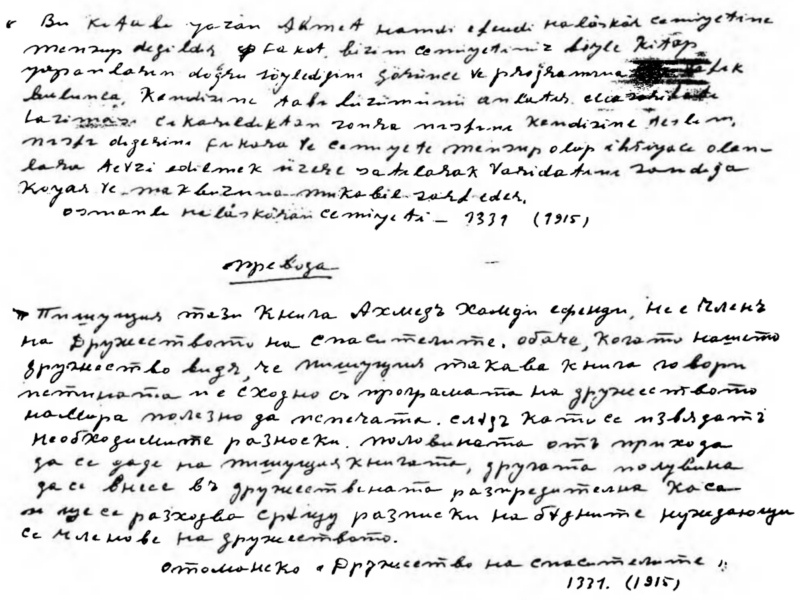 Bu kitabı yazan Ahmet Hamdi efendi halâskâr cemiyetine
mensup değildir fakat, bizim cemiyetimiz böyle kitap
yapanların doğru söylediğini görünce ve programına
bulunca, kendisine tabı lüzümünü anlatır
lazıması çıkarıldıktan sonra nısfını kendisine teslim,
nısfı diğerini fukara ve cemiyete mensup olup ihtiyacı olan-
lara tevzi edilmek üzere satılarak varidatını sandığa
koyar ve makbuzuna mukabil sarfeder.
Osmanlı halâskâran cemiyeti – 1331 (1915)
превода
" Пишущия тази книга Ахмедъ Хамди ефенди, не е членъ
на Дружеството на спасителите. обаче, когато нашето
дружество видя, че пишущия такава книга говори
истината и е сходно съ програмата на дружеството
намира полезно да испечата. слѣдъ като се извядатъ
необходимите разноски. половината отъ прихода
да се даде на пишущия книгата, другата половина
да се внесе въ дружествената разпредителна каса
и ще се разходва срѣщу разписки на бѣдните нуждающи
се членове на дружеството.
Отоманско "Дружество на спасителите"
1331. (1915)